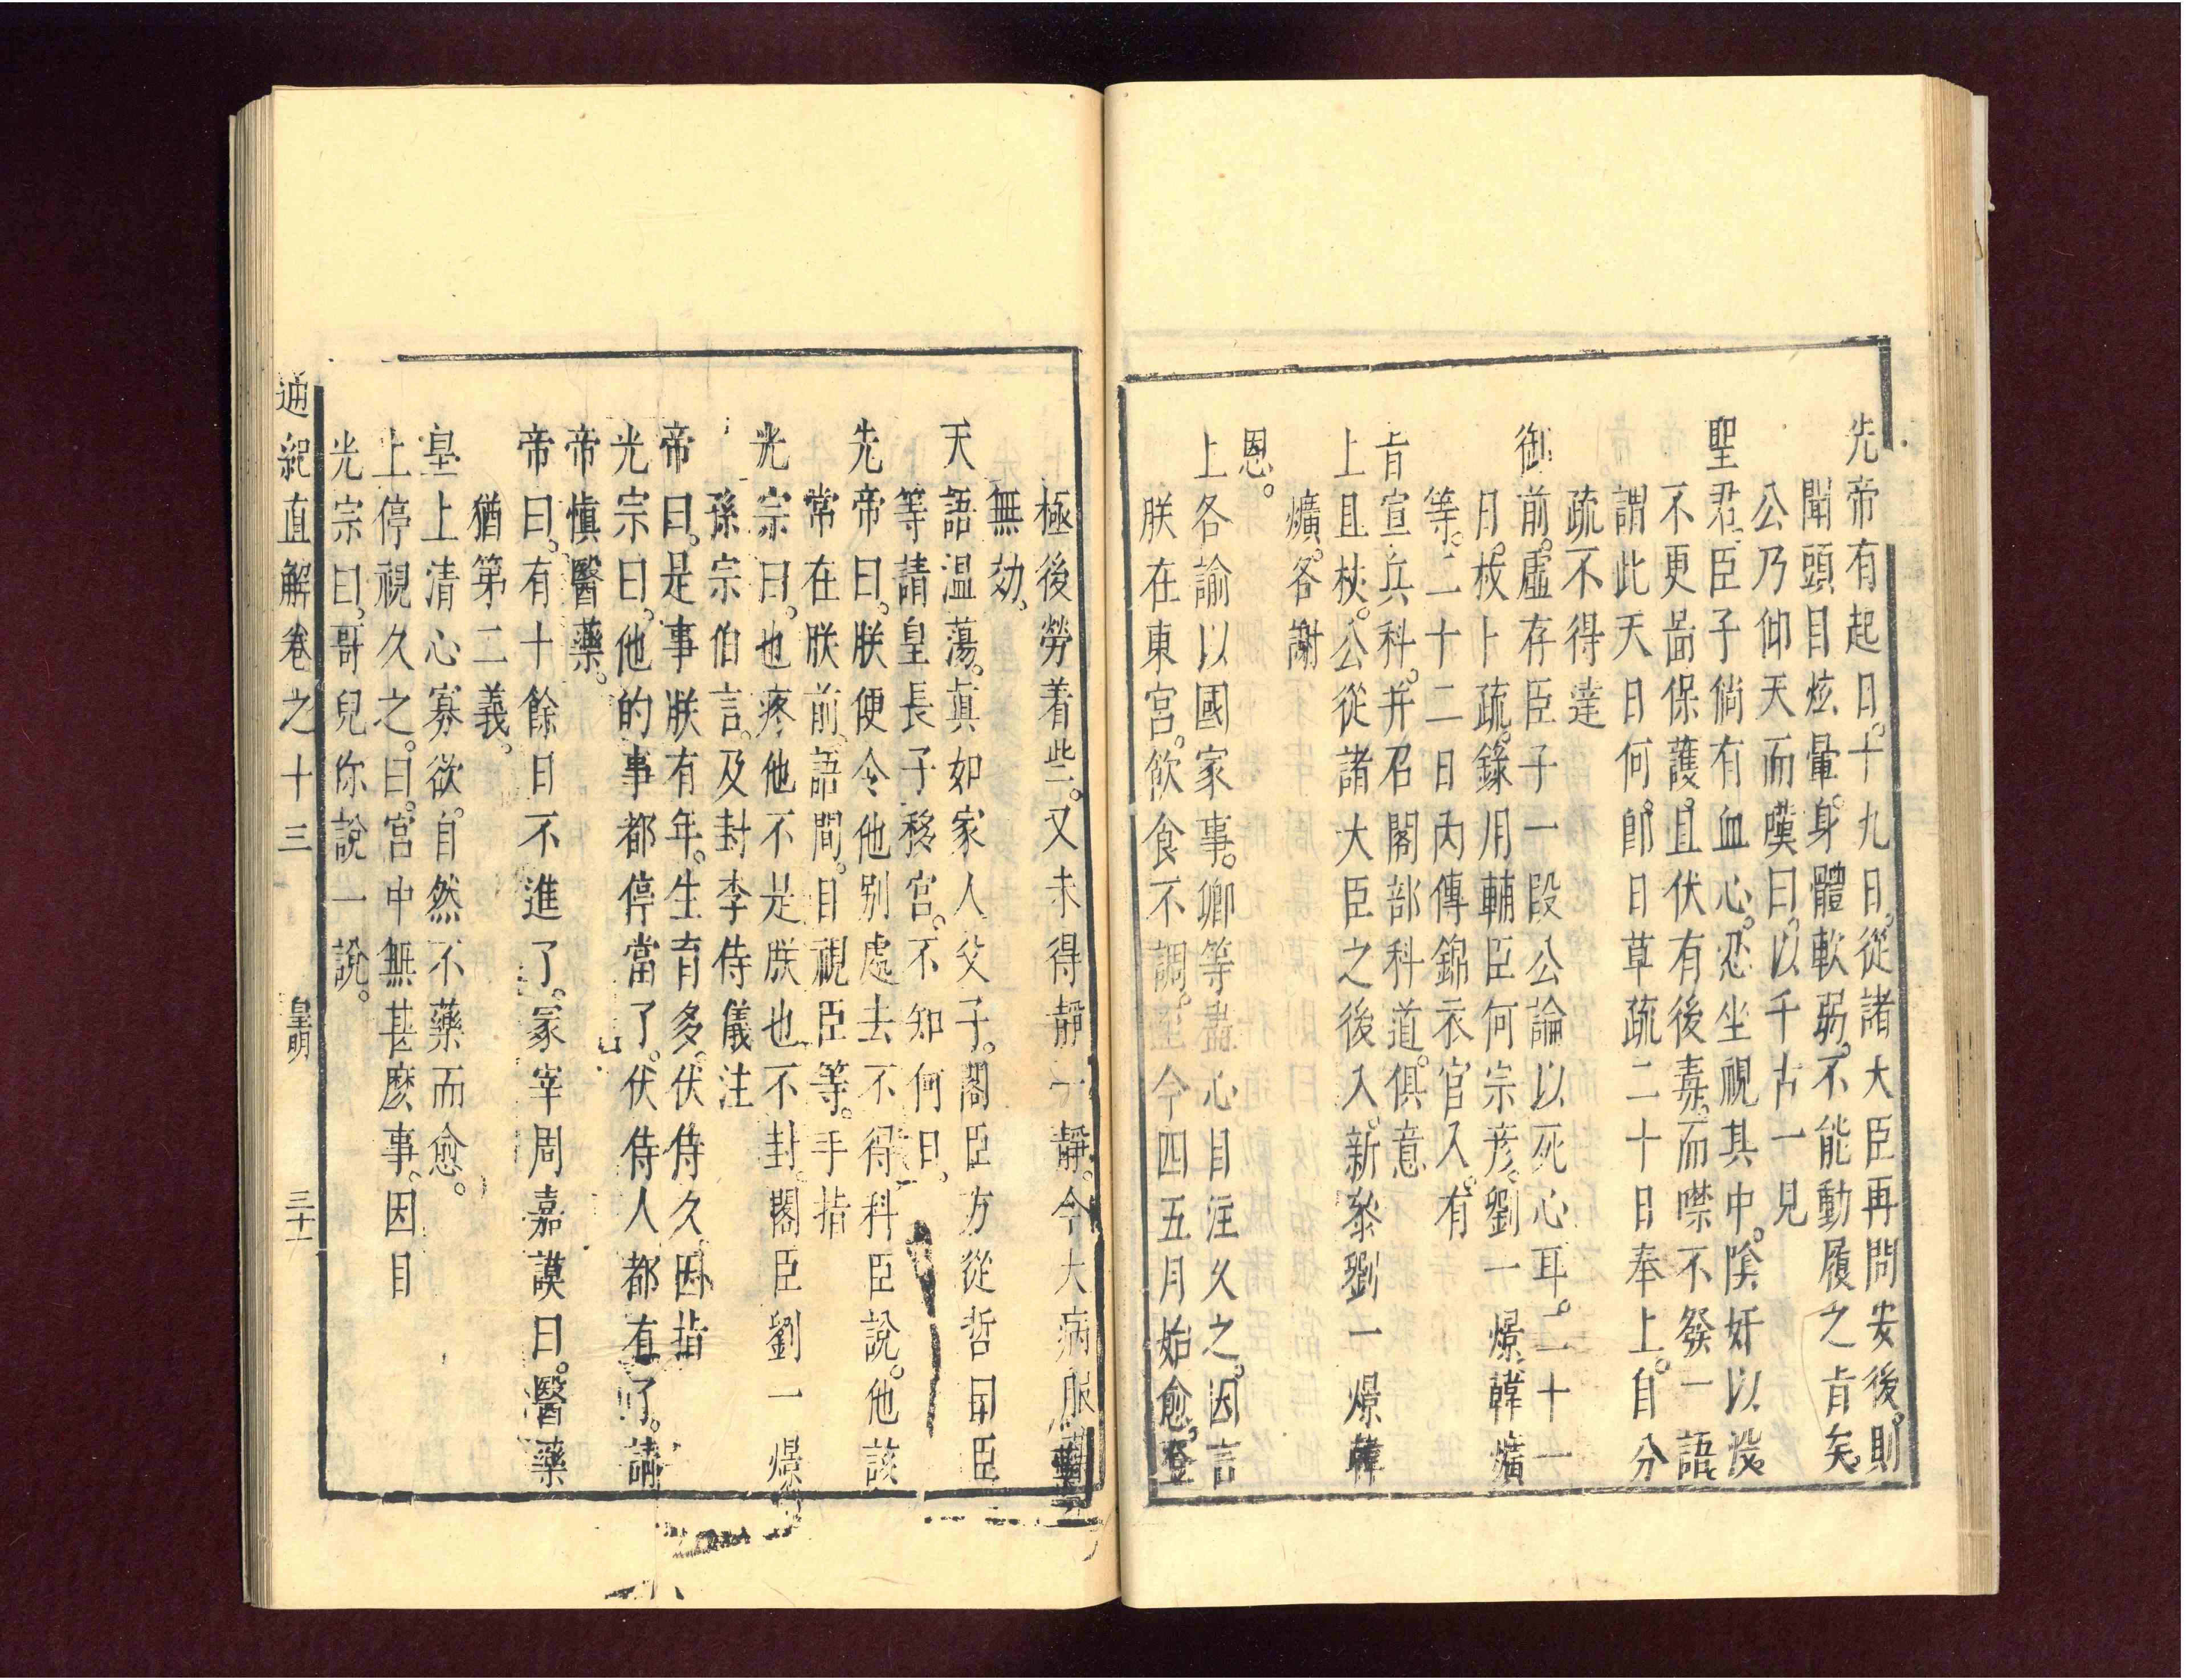 先帝有起日。十九日。從諸大臣再問安後。則
聞頭目炫暈。身體軟弱。不能動履之旨矣。
公乃仰天而嘆曰。以千古一見
聖君。臣子倘有血心。忍坐視其中。陰奸以沒
不更啚保護。且伏有後毒。而噤不發一語
謂此天日何。卽日草疏二十日奉上。自分
疏不得達
御前。虛存臣子一段公論以死心耳。二十一
日。枝卜疏。錄用輔臣何宗彥。劉一燝韓爌
等。二十二日內傳錦衣官入。有
旨宣兵科。并召閣部科道。俱意
上且杖。公從諸大臣之後入。新叅劉一燝韓
爌。各謝
恩。
上各諭以國家事。卿等盡心目注久之。因言
朕在東宮。飲食不調。至今四五月始愈。登
極後勞着些。又未得靜一靜。今大病服藥
無効。
天語温蕩。眞如家人父子。閣臣方從哲囯臣
等請皇長子移宮。不知何日。
先帝曰。朕便令他别處去不得科臣說。他該
常在朕前。語間。目視臣等。手指
光宗曰。也疼他不是朕也不封。閣臣劉一燝。
孫宗伯言。及封李侍儀注
帝曰。是事朕有年。生育多。伏侍久。因指
光宗曰。他的事都停當了。伏侍人都有了。請
帝愼醫藥。
帝曰。有十餘日不進了。冢宰周嘉謨曰。醫藥
猶第二義。
皇上清心寡欲。自然不藥而愈。
上停視久之。曰。宮中無甚麽事。因目
光宗曰。哥兒你說一說。
通紀直解卷之十三 皇明 三十一